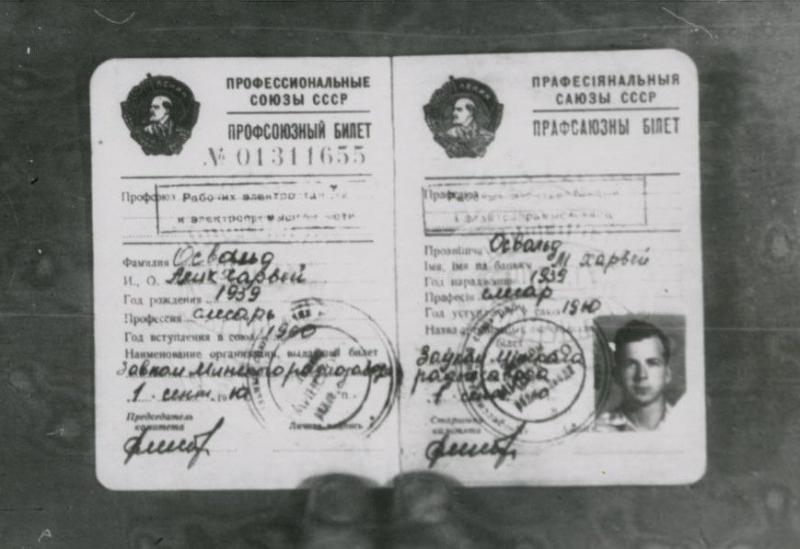 ПРОФЕССИОНАЛЬНЫЕ
СОЮЗЫ СССР
ПРОФСОЮЗНЫЙ БИЛЕТ
№ 01311655
Профсоюз Рабочих
и электропромышленности
Фамилия Освальд
И., О. Алик Харвей
Год рождения 1939
Профессия слесарь
Год вступления в союз 1960
Наименование организации, выдавшей билет
Завком Минского радиозавода
1 сент. 1960 г.
Председатель
комитета
Личная подпись
ПРАФЕСІЯНАЛЬНЫЯ
САЮЗЫ СССР
ПРАФСАЮЗНЫ БІЛЕТ
Прафсаюз
Прозвішча Освальд
Імя, імя па бацьку Харвей
Год нараджэння 1939
Прафесія слесар
Год уступлення ў саюз 1960
Назва
білет
Заўком Мінскага
радыёзавода
1 1960
Старшыня
камітэта